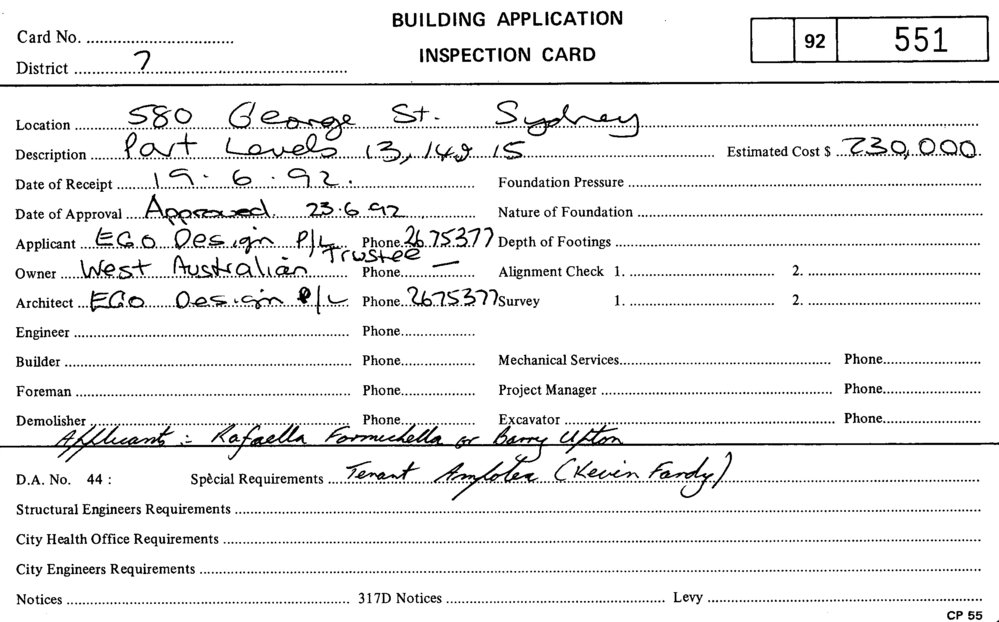 BUILDING APPLICATION
Card No. 92 551
INSPECTION CARD
District 7
Location 580 George St. Sydney
Description Part Levels 13, 14 & 15 Estimated Cost $ 230,000
Date of Receipt 19.6.92. Foundation Pressure
Date of Approval Approved 23.6.92 Nature of Foundation
Applicant EGO Design P/L Phone 2675377 Depth of Footings
Owner West Australian Trustee Phone — Alignment Check 1. 2.
Architect EGO Design P/L Phone 2675377 Survey 1. 2.
Engineer Phone
Builder Phone Mechanical Services Phone
Foreman Phone Project Manager Phone
Demolisher Phone Excavator Phone
Applicant : Rafaella Formichella or Barry Upton
D.A. No. 44 : Spècial Requirements Tenant (Kevin Fardy)
Structural Engineers Requirements
City Health Office Requirements
City Engineers Requirements
Notices 317D Notices Levy
CP 55